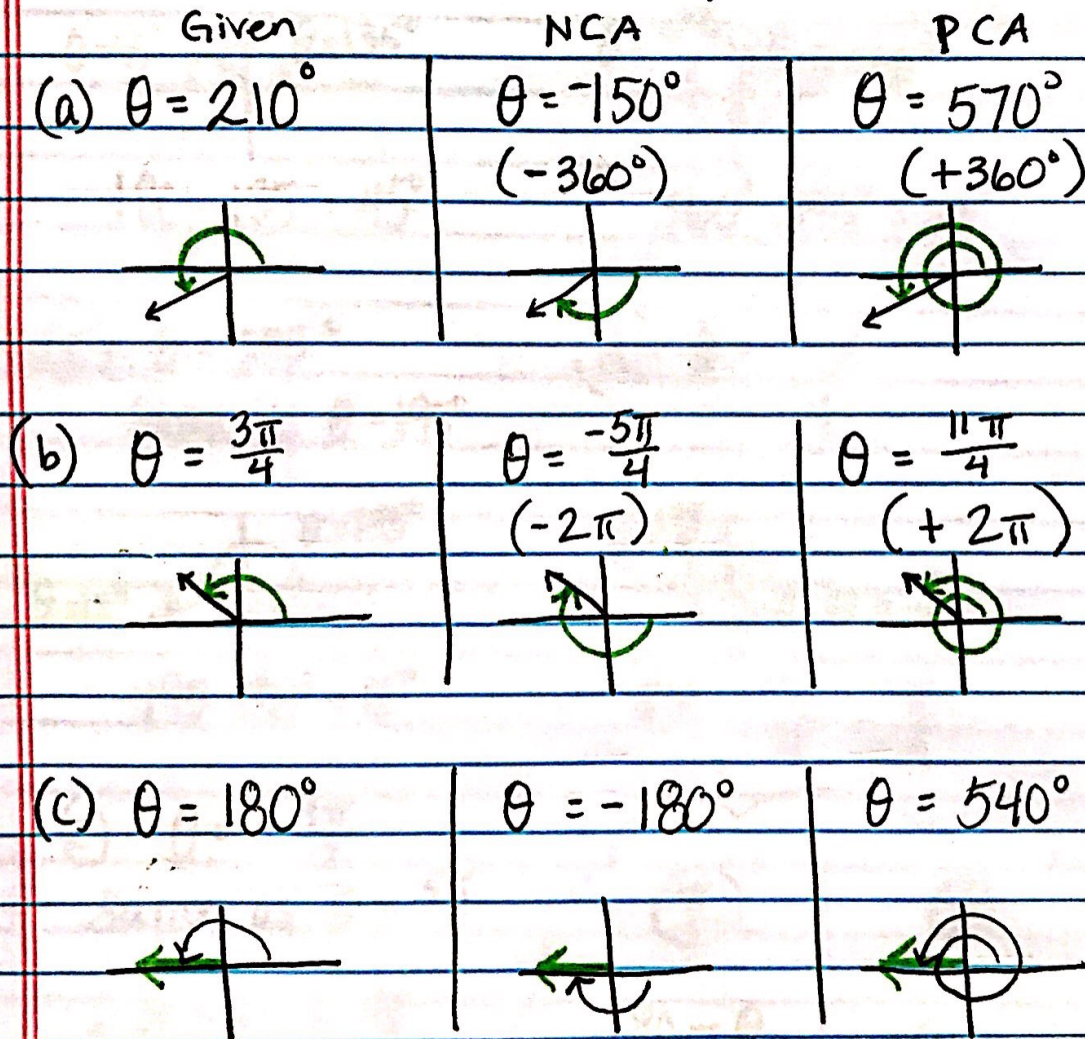 Given NCA PCA
(a) θ = 210° θ = -150° θ = 570°
(-360°) (+360°)
(b) θ = 3π/4 θ = -5π/4 θ = 11π/4
(-2π) (+2π)
(c) θ = 180° θ = -180° θ = 540°